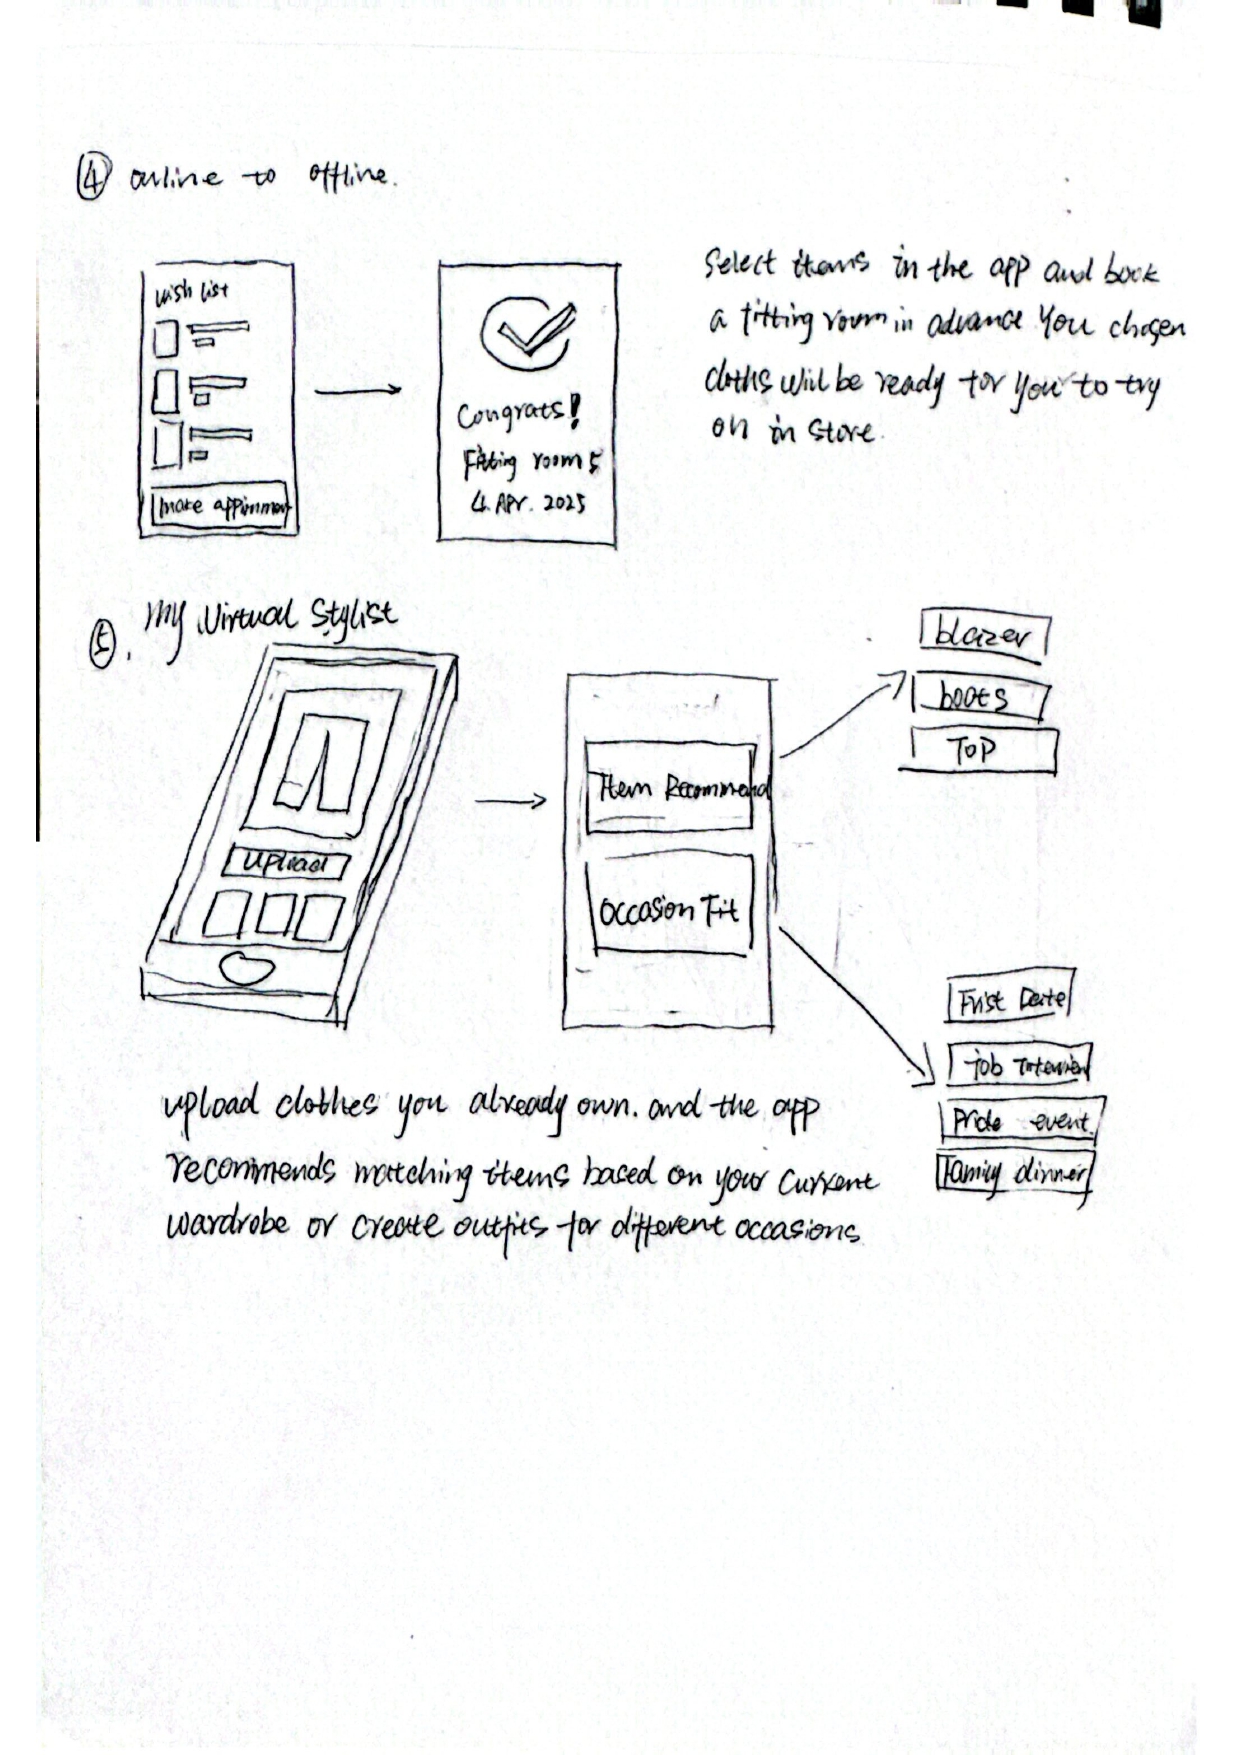 ④ online to offline.
wish list
make appinmen
Congrats!
Fitting room 5
4. Apr. 2025
Select items in the app and book
a fitting room in advance You chosen
cloths will be ready for you to try
on in store.
⑤. My Virtual Stylist
upload
Item Recommend
Occasion Fit
blazer
boots
TOP
Frist Date
job Interview
Pride event.
Family dinner
upload clothes you already own. and the app
recommends matching items based on your current
wardrobe or create outfits for different occasions